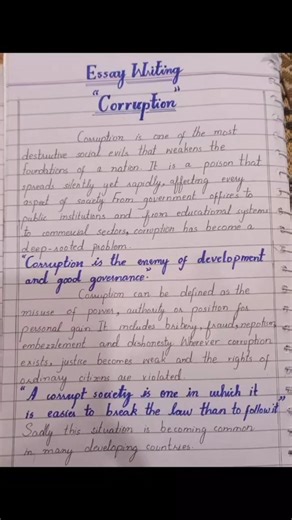 Essay Writing
"Corruption"
Corruption is one of the most
destructive social evils that weakens the
foundations of a nation. It is a poison that
spreads silently yet rapidly, affecting every
aspect of society from government offices to
public institutions and from educational systems
to commercial sectors, corruption has become a
deep-rooted problem.
"Corruption is the enemy of development
and good governance."
Corruption can be defined as the
misuse of power, authority or position for
personal gain. It includes bribery, fraud, nepotism,
embezzlement and dishonesty. Wherever corruption
exists, justice becomes weak and the rights of
ordinary citizens are violated.
"A corrupt society is one in which it
is easier to break the law than to follow it"
Sadly this situation is becoming common
in many developing countries.